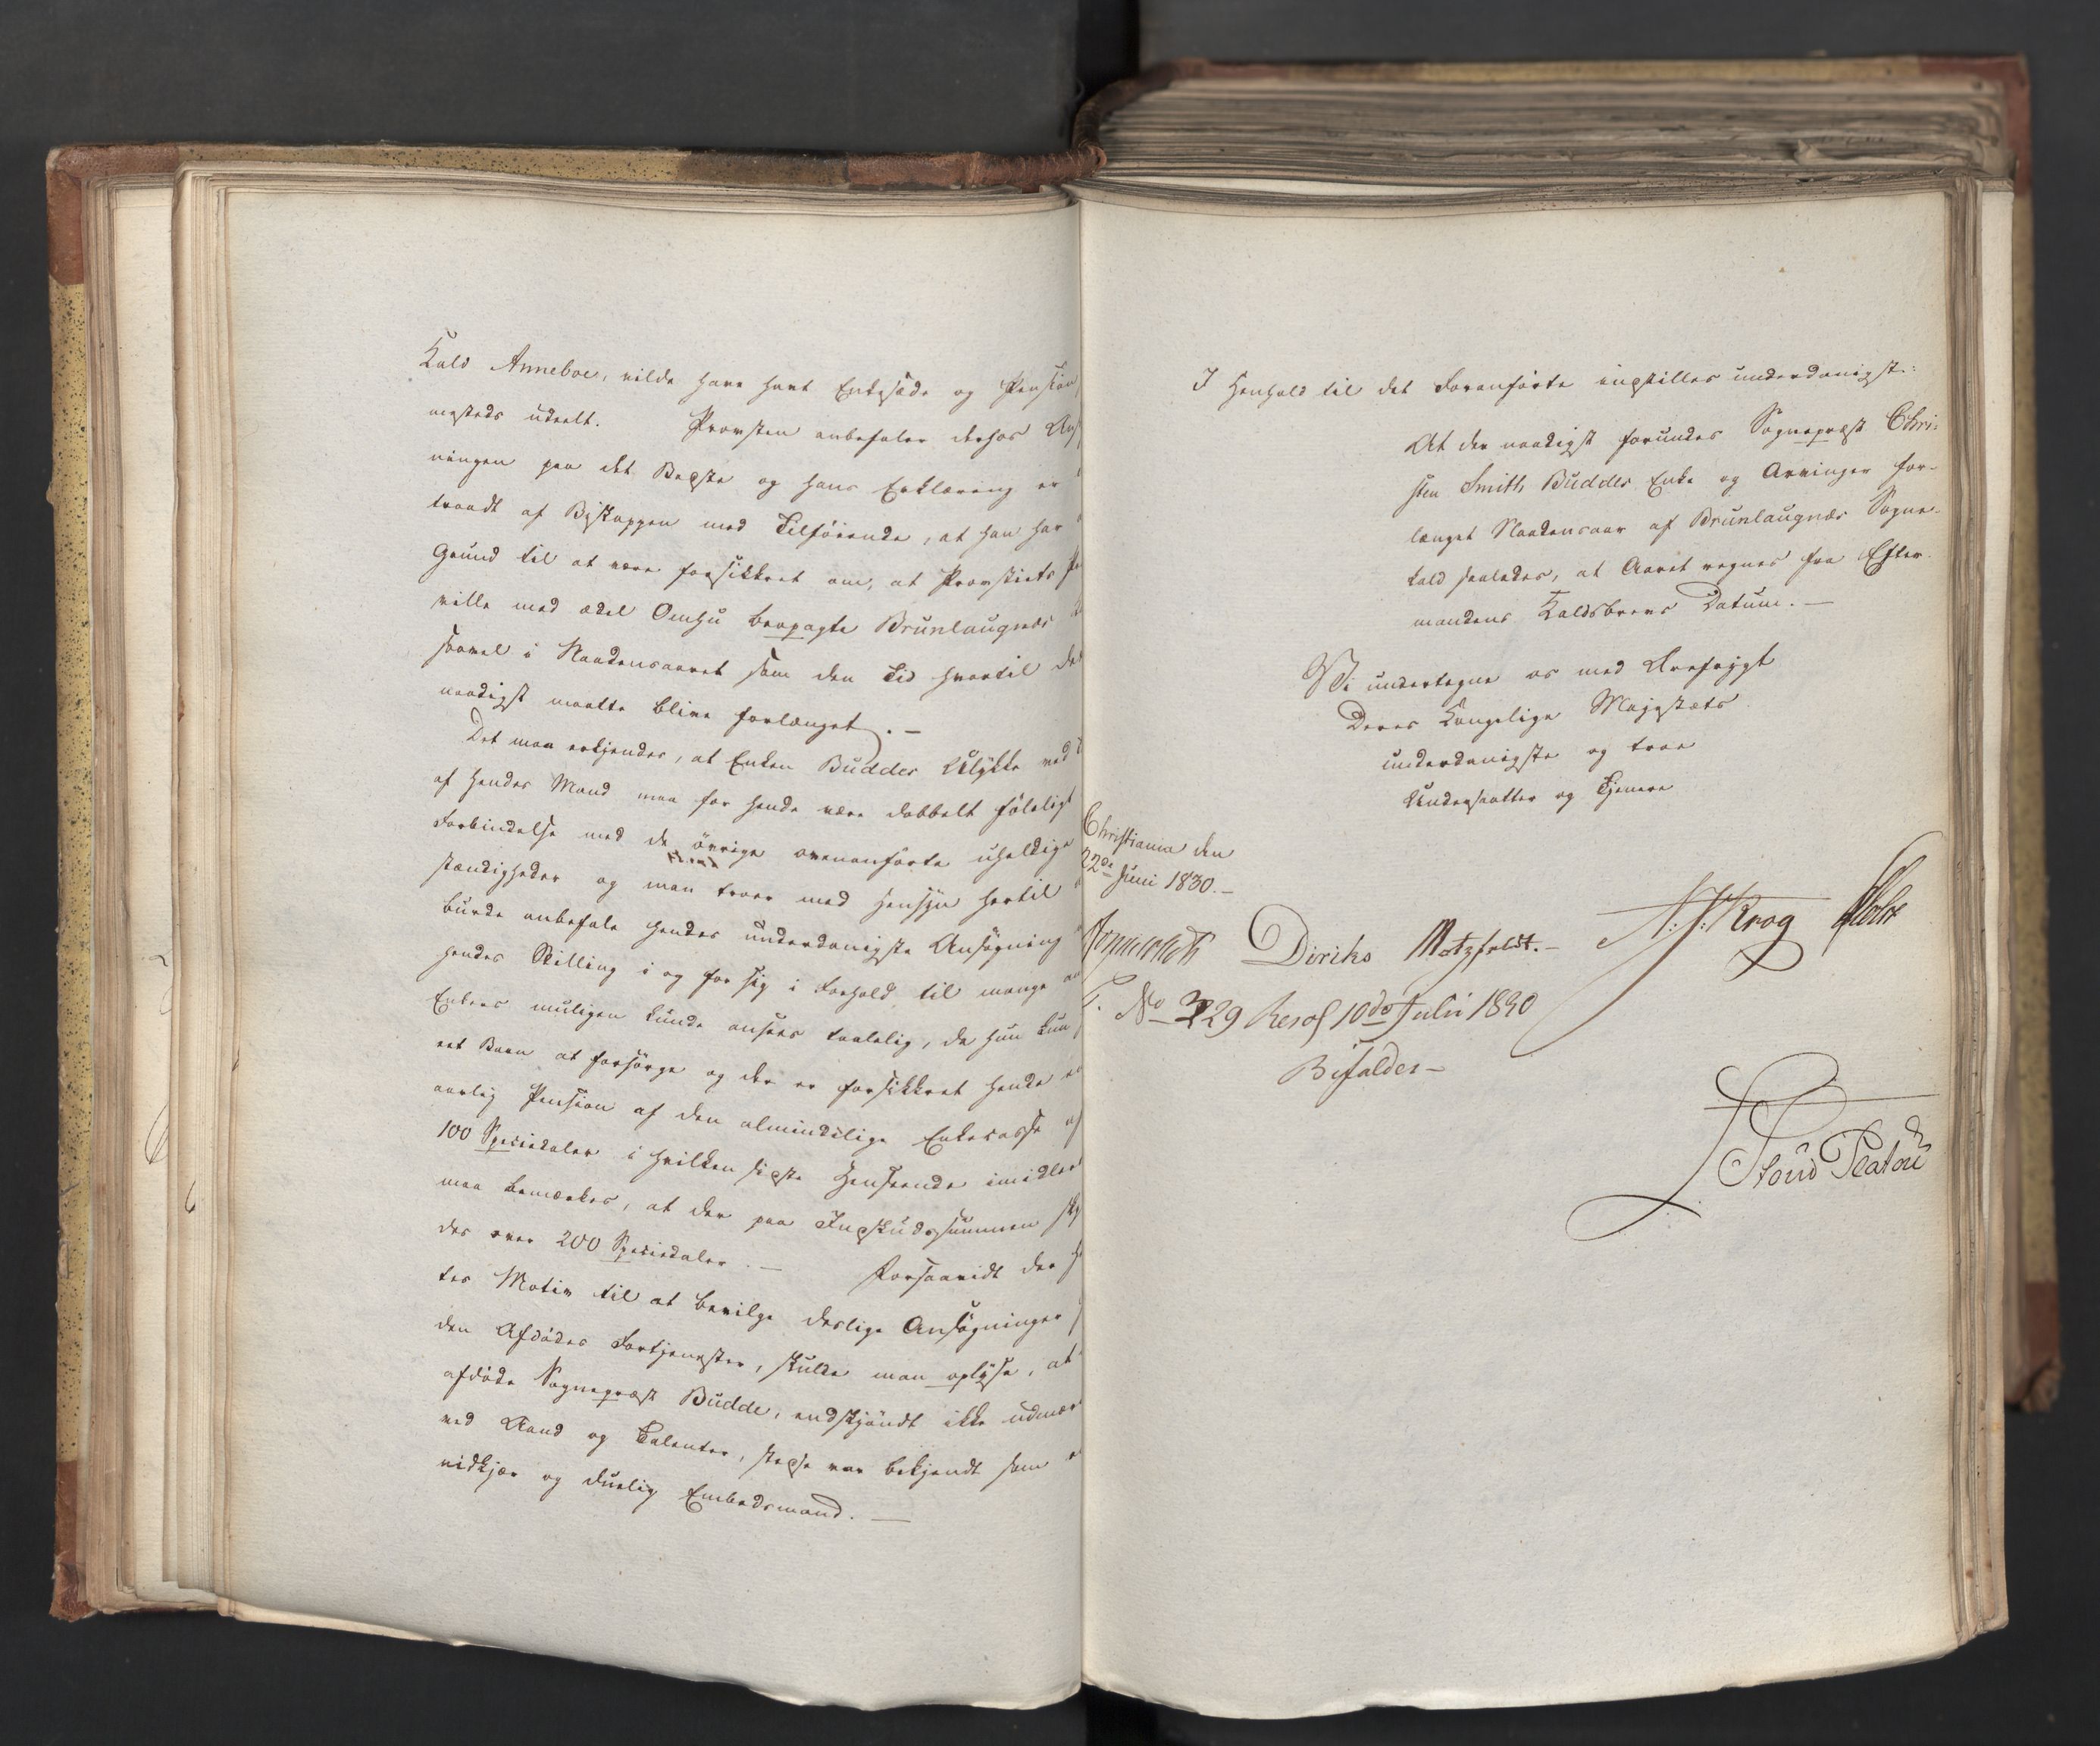 Kald Anneboe, vilde have havt Enkesæde og Pension
nesteds udredt. Provsten anbefaler derhos
ningen paa det Bedste og hans Erklæring er
traadt af Biskoppen med Tilføiende, at han har
Grund til at være forsikkret om, at Provstiets
ville med ædel Omhu besørge Brunlaugnæs
saavel i Naadensaaret som den Tid hvortil det
naadigst maatte blive forlænget. —
Det maa erkjendes, at Enken Buddes Ulykke ved
af hendes Mand maa for hende være dobbelt føleligt
Forbindelse med de øvrige ovenanførte uheldige
stændigheder og man troer med Hensyn hertil
burde anbefale hendes underdanigste Ansøgning
hendes Stilling i og for sig i Forhold til mange
Enkers muligen kunde ansees taalelig, da hun kun
eet Barn at forsørge og der er forsikkret hende
aarlig Pension af den almindelige Enkecasse af
100 Speciedaler i hvilken sidste Henseende imidler
maa bemærkes, at der paa Indskudssummen
des over 200 Speciedaler. — Forsaavidt der
tes Motiv til at bevilge deslige Ansøgninger
den Afdødes Fortjenester, skulde man oplyse, at
afdøde Sognepræst Budde, endskjøndt ikke udmær
ved Aand og Talenter, stedse var bekjendt som
nidkjær og duelig Embedsmand. —
I Henhold til det Foranførte indstilles underdanigst:
At der naadigst forundes Sognepræst Chri-
sten Smith Buddes Enke og Arvinger for-
længet Naadensaar af Brunlaugnæs Sogne-
kald saaledes, at Aaret regnes fra Efter-
mandens Kaldsbrevs Datum. —
Vi undertegne os med Ærefrygt
Deres Kongelige Majestæts
underdanigste og troe
Undersaatter og Tjenere
Christiania den
22de Juni 1830. —
Diriks Motzfeldt. — N. J. Krog Holst
No 329 Res of 10de Julii 1830
Bifaldes —
Stoud Platou